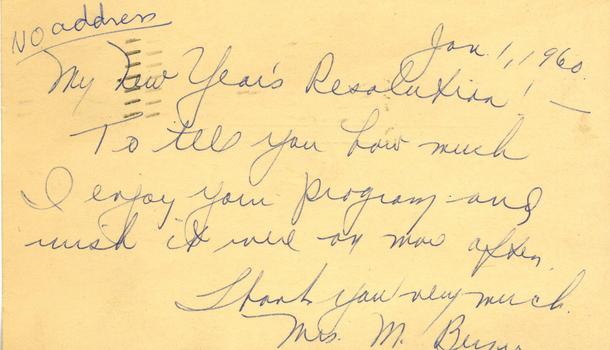 No address
Jan. 1, 1960.
My New Year's Resolution! —
To tell you how much
I enjoy your program and
wish it were on more often.
Thank you very much.
Mrs. M.